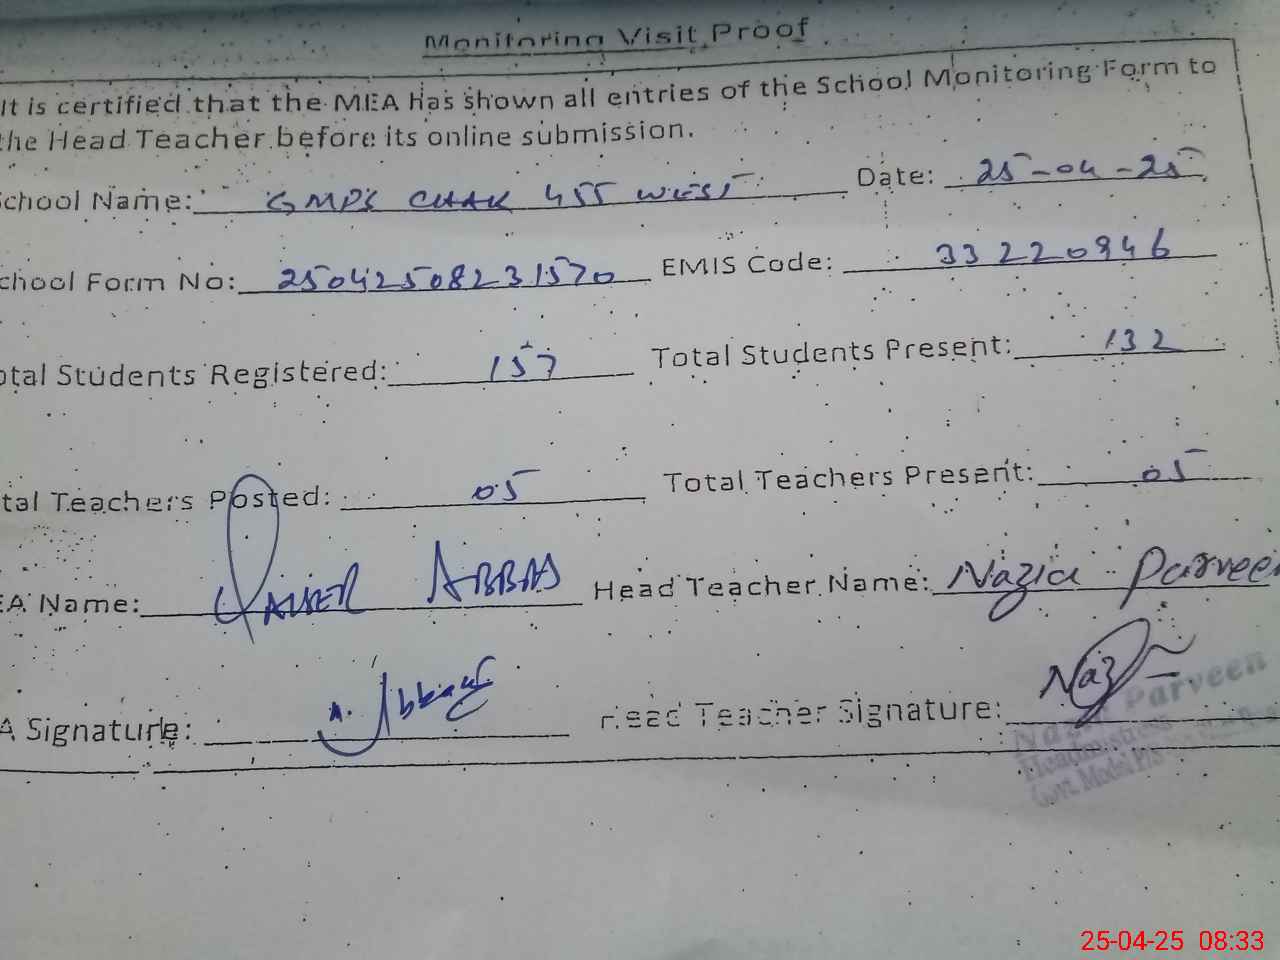 Monitoring Visit Proof
It is certified that the MEA has shown all entries of the School Monitoring Form to
the Head Teacher before its online submission.
School Name: GMPS CHAK 455 WEST Date: 25-04-25
chool Form No: 25042508231570 EMIS Code: 33220946
otal Students Registered: 157 Total Students Present: 132
tal Teachers Posted: 05 Total Teachers Present: 05
EA Name: QAISER ABBAS Head Teacher Name: Nazia Parveen
A Signature: A. Abbas Head Teacher Signature: Naz
Nazia Parveen
Headmistress
Govt. Model P/S
25-04-25 08:33